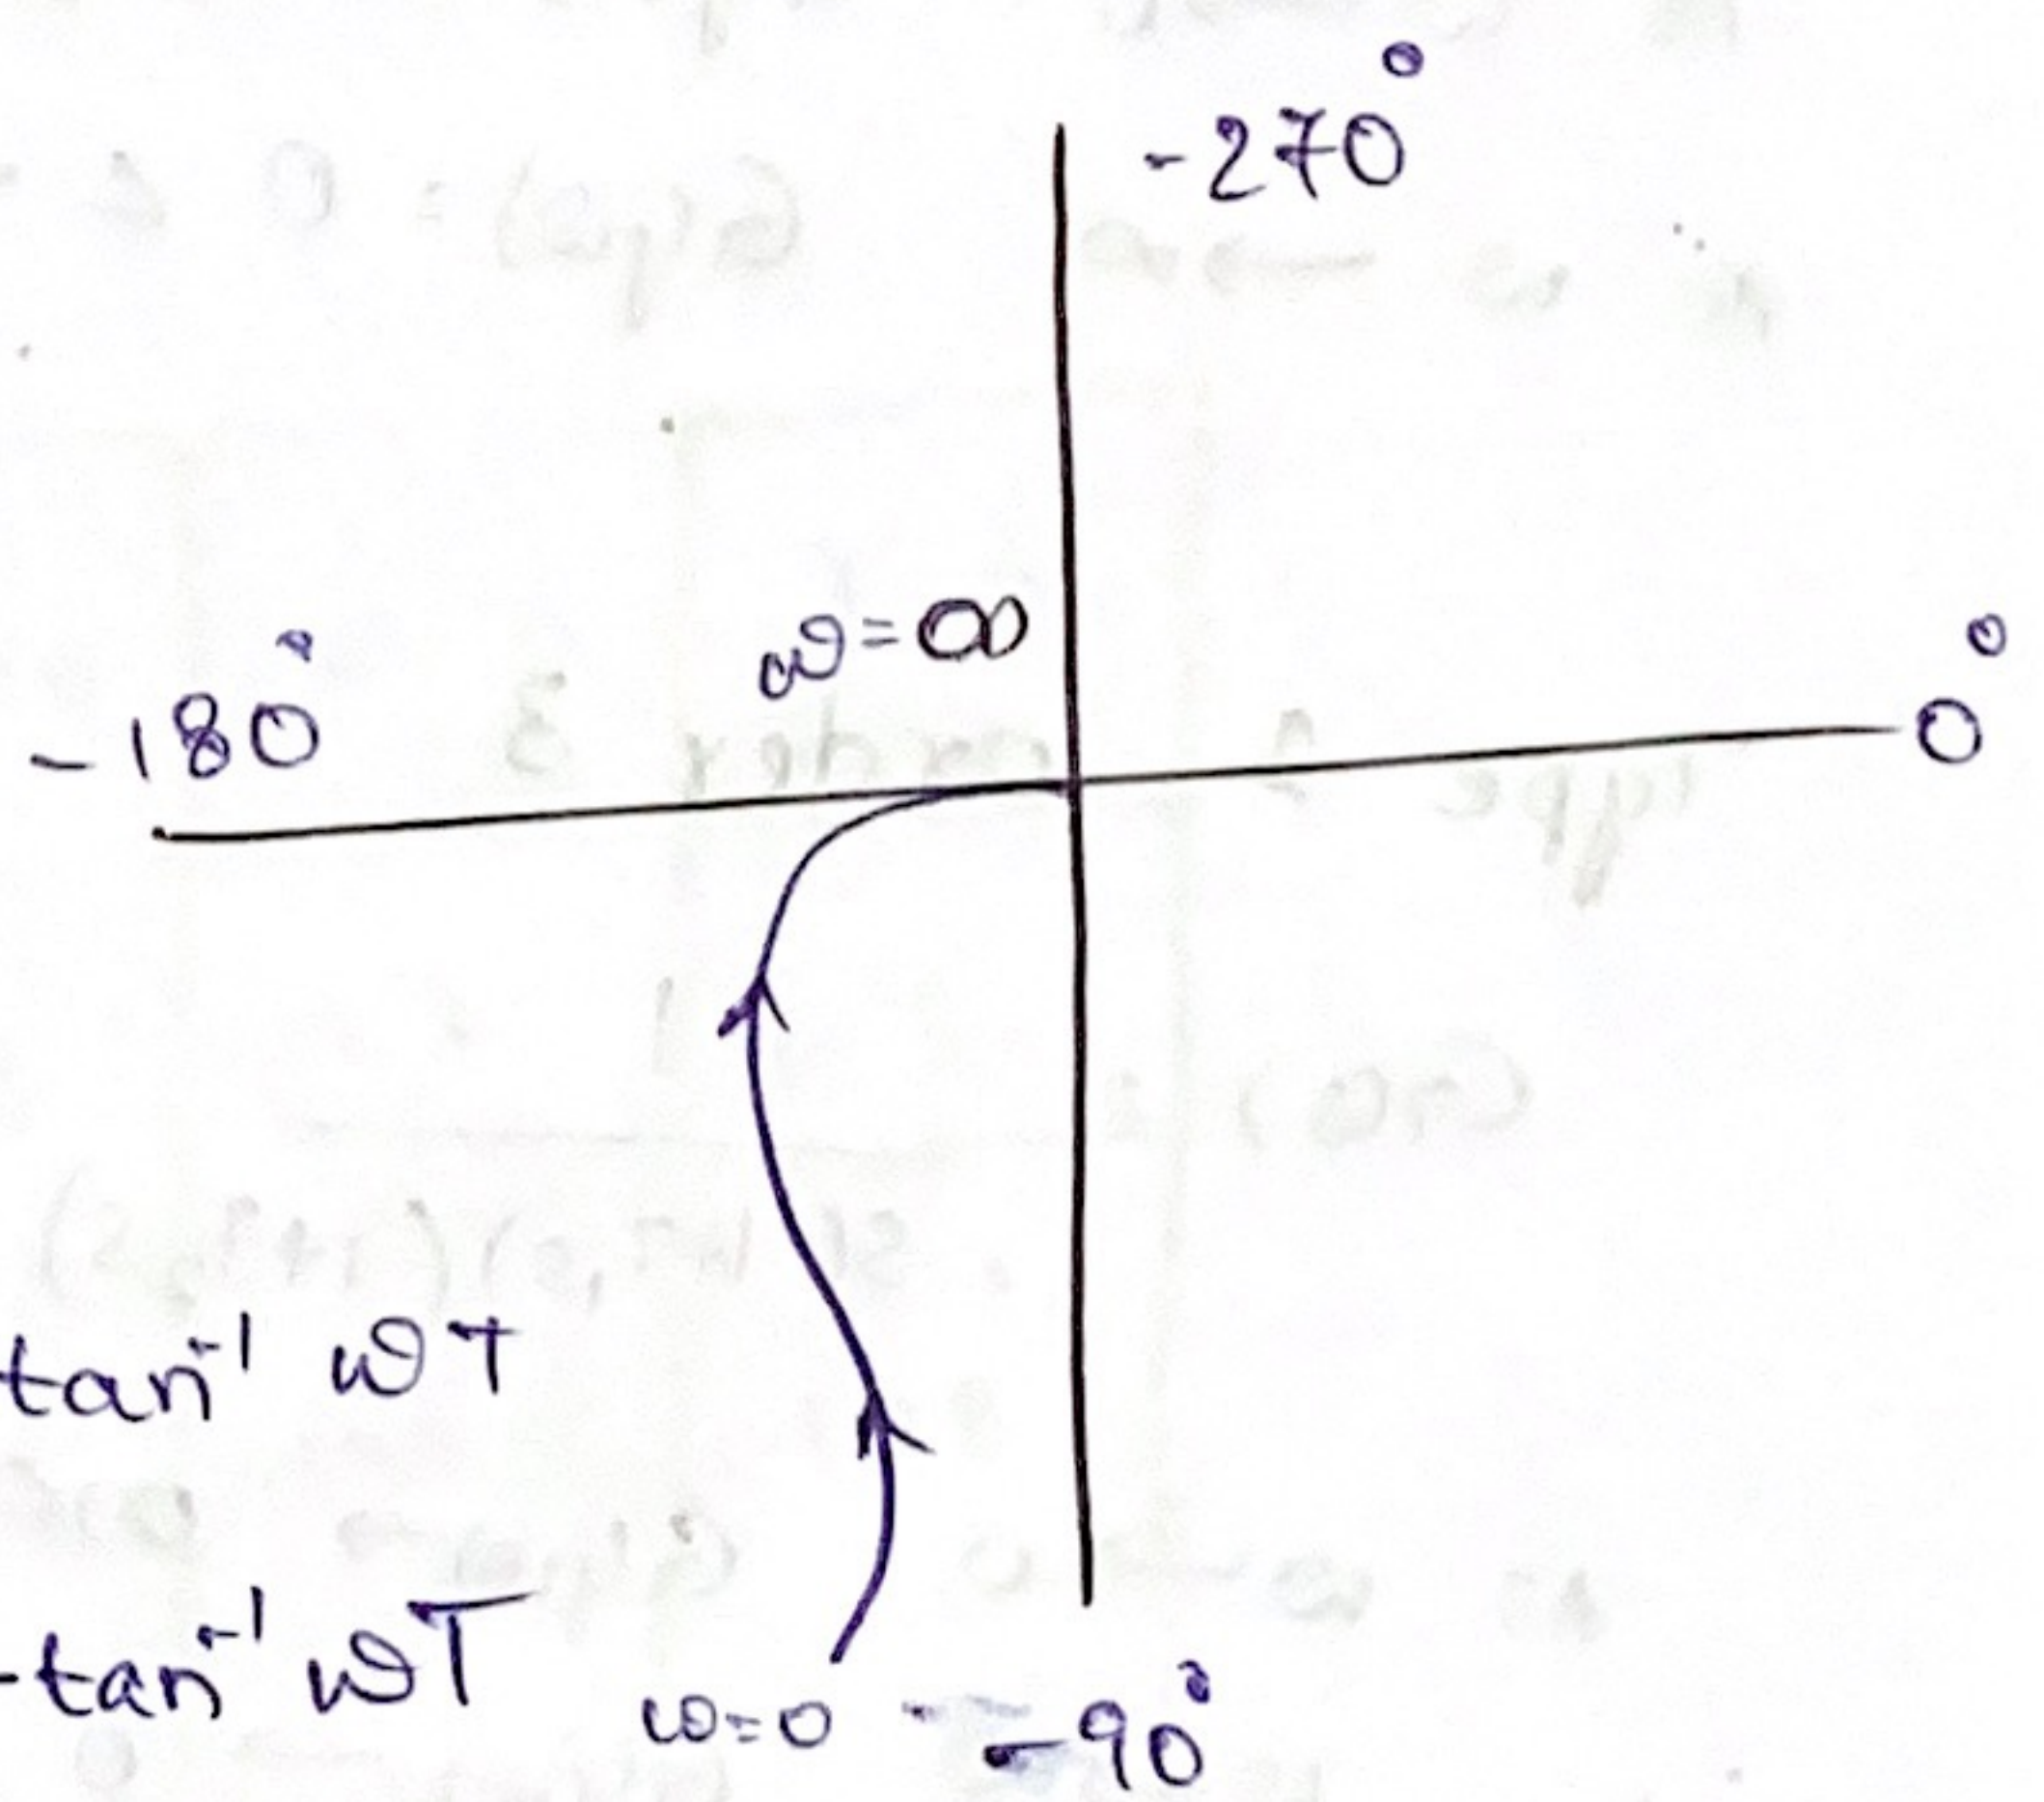 -270°
ω=∞
-180°
0°
tan⁻¹ ωT
-tan⁻¹ ωT
ω=0
-90°